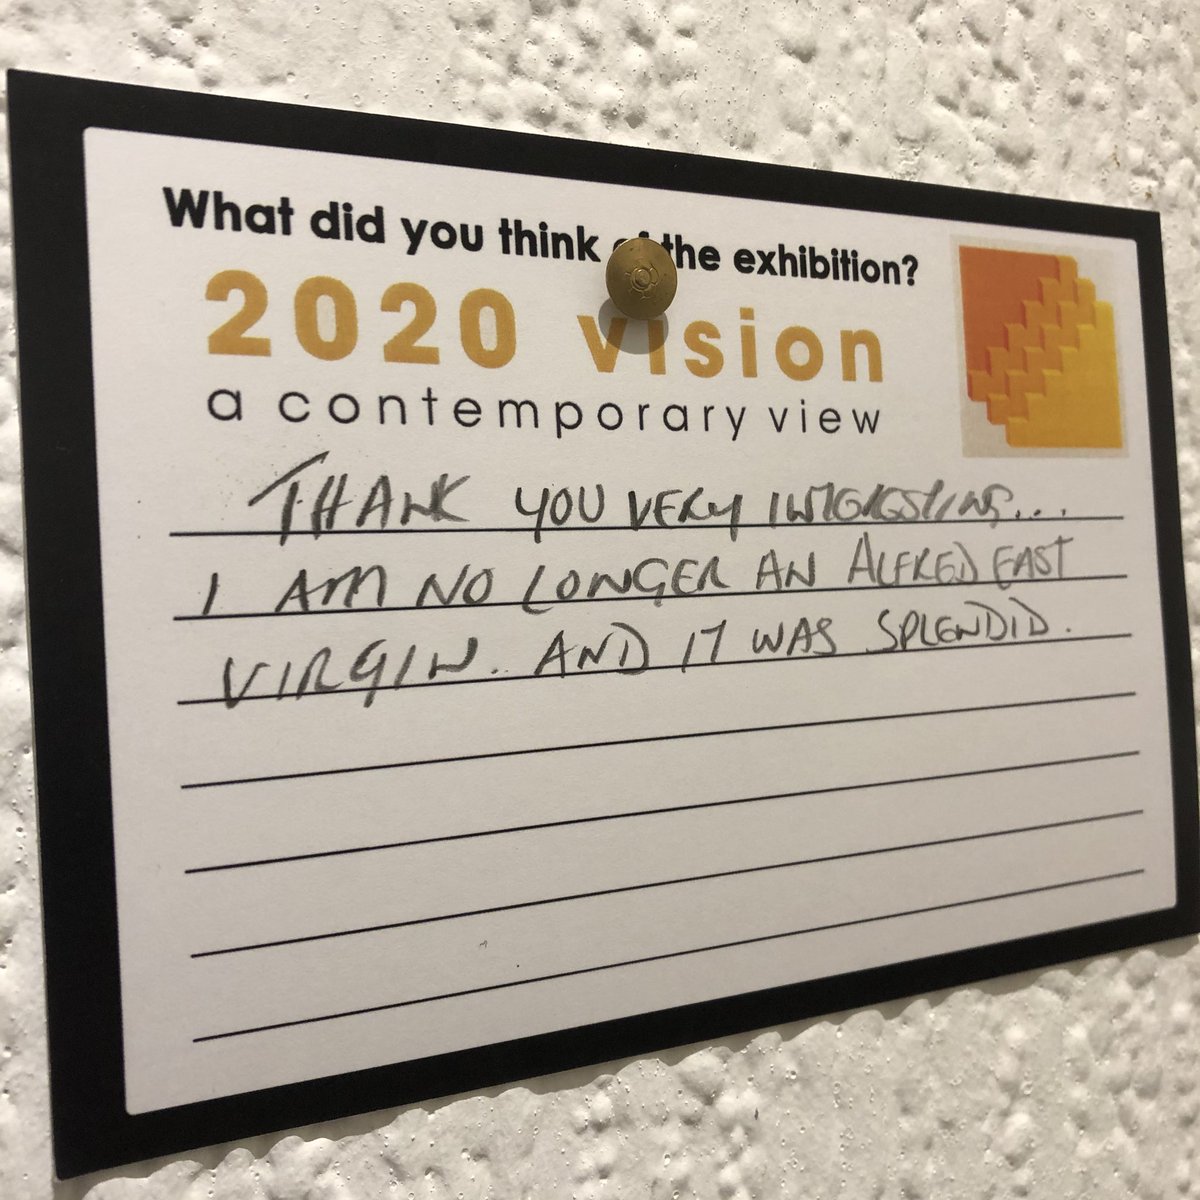 What did you think of the exhibition?
2020 vision
a contemporary view
THANK YOU VERY INTERESTING...
I AM NO LONGER AN ALFRED EAST
VIRGIN. AND IT WAS SPLENDID.